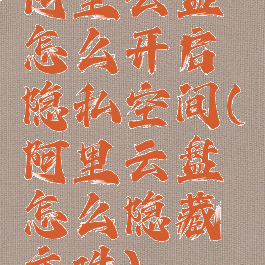 阿里云盘
怎么开启
隐私空间(
阿里云盘
怎么隐藏